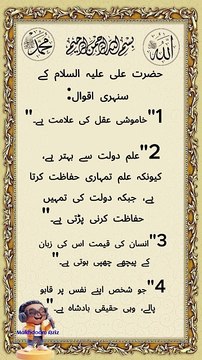 الله
بسم الله الرحمن الرحيم
محمد
حضرت علی علیہ السلام کے
سنہری اقوال:
1"خاموشی عقل کی علامت ہے۔"
2"علم دولت سے بہتر ہے،
کیونکہ علم تمہاری حفاظت کرتا
ہے، جبکہ دولت کی تمہیں
حفاظت کرنی پڑتی ہے۔"
3"انسان کی قیمت اس کی زبان
کے پیچھے چھپی ہوتی ہے۔"
4"جو شخص اپنے نفس پر قابو
پالے، وہی حقیقی بادشاہ ہے۔"